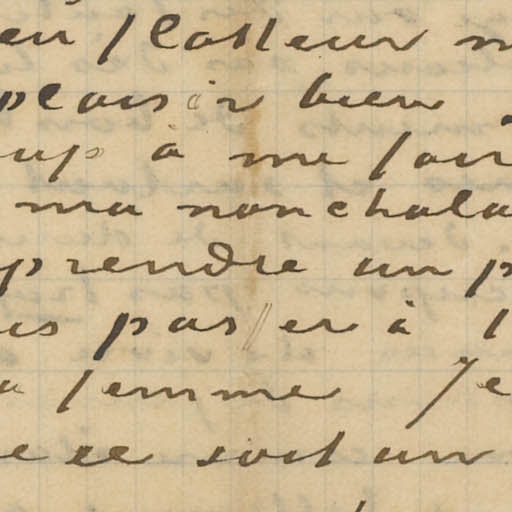 en flatteur
plaisir bien
up à me fair
ma nonchala
prendre un p
us passer à l
a femme Je
e ce soit un